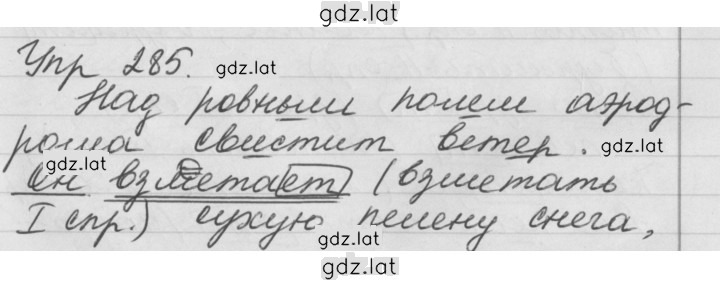 gdz.lat
Упр 285.
gdz.lat
Над ровным полем аэрод-
рома свистит ветер.
gdz.lat
Он взметает (взметать
I спр.) сухую пелену снега,
gdz.lat
gdz.lat